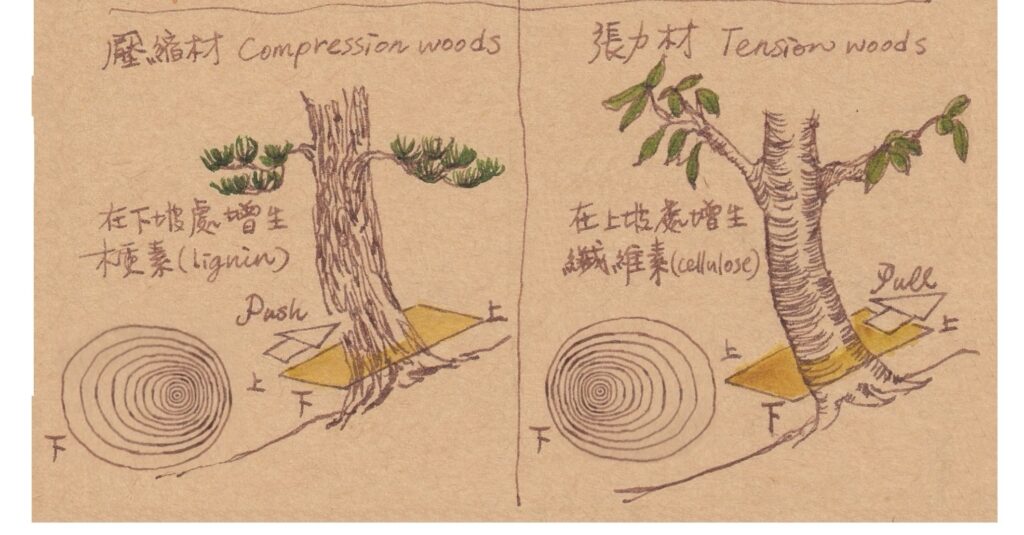 壓縮材 Compression woods
在下坡處增生
木質素(lignin)
Push
上
上
下
下
張力材 Tension woods
在上坡處增生
纖維素(cellulose)
Pull
上
上
下
下